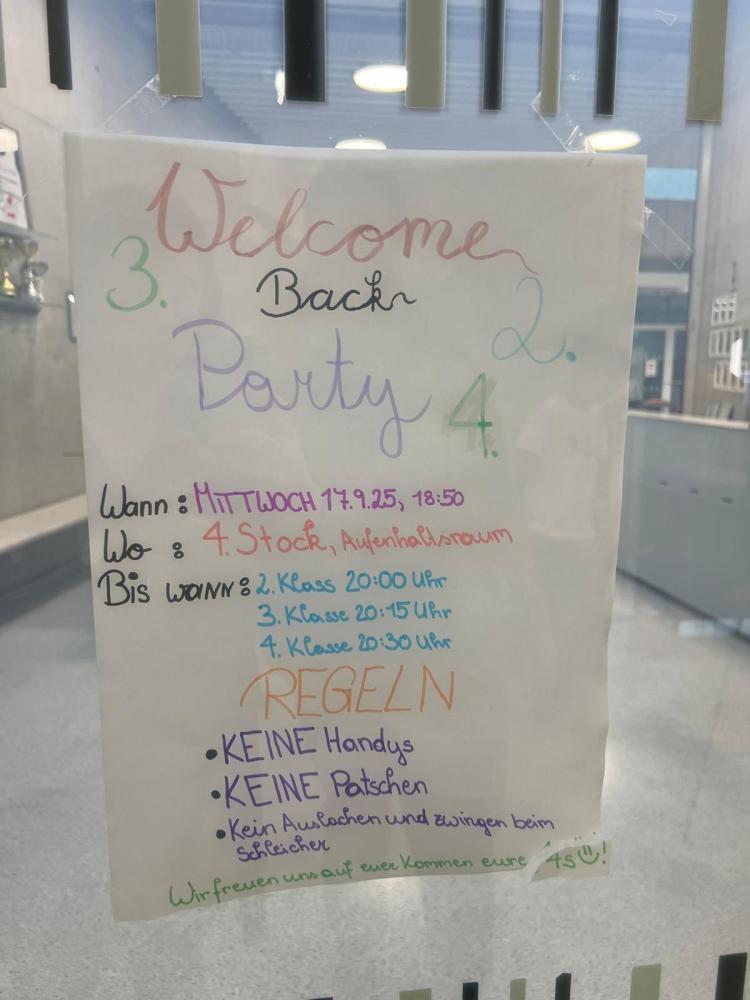 Welcome
3.
Back
2.
Party
4.
Wann: MITTWOCH 17.9.25, 18:50
Wo : 4. Stock, Aufenhaltsraum
Bis WANN: 2. Klass 20:00 Uhr
3. Klasse 20:15 Uhr
4. Klasse 20:30 Uhr
REGELN
• KEINE Handys
• KEINE Patschen
• Kein Auslachen und zwingen beim
Schleicher
Wir freuen uns auf euer Kommen eure 4s!